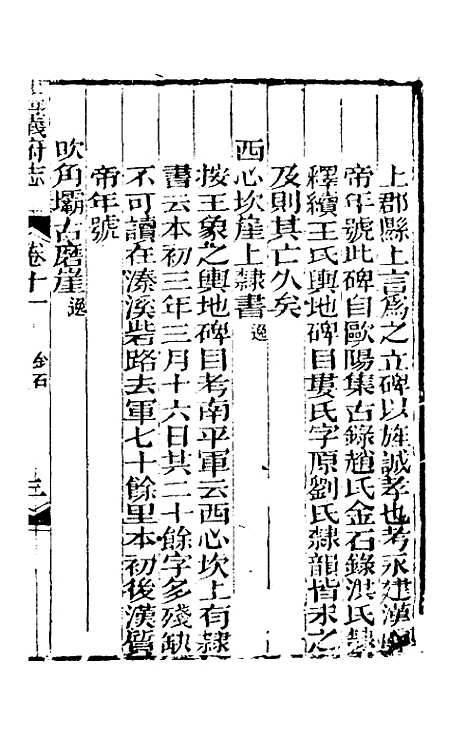 上郡縣上言爲之立碑以旌誠孝也考永建漢順
帝年號此碑自歐陽集古錄趙氏金石錄洪氏隸
釋續王氏輿地碑目婁氏字原劉氏隸韻皆未之
及則其亡久矣
西心坎崖上隸書 逸
按王象之輿地碑目考南平軍云西心坎上有隸
書云本初三年三月十六日共二十餘字多殘缺
不可讀在溱溪砦路去軍七十餘里本初後漢質
帝年號
吹角壩古磨崖 逸
義府志 卷十一 金石 三